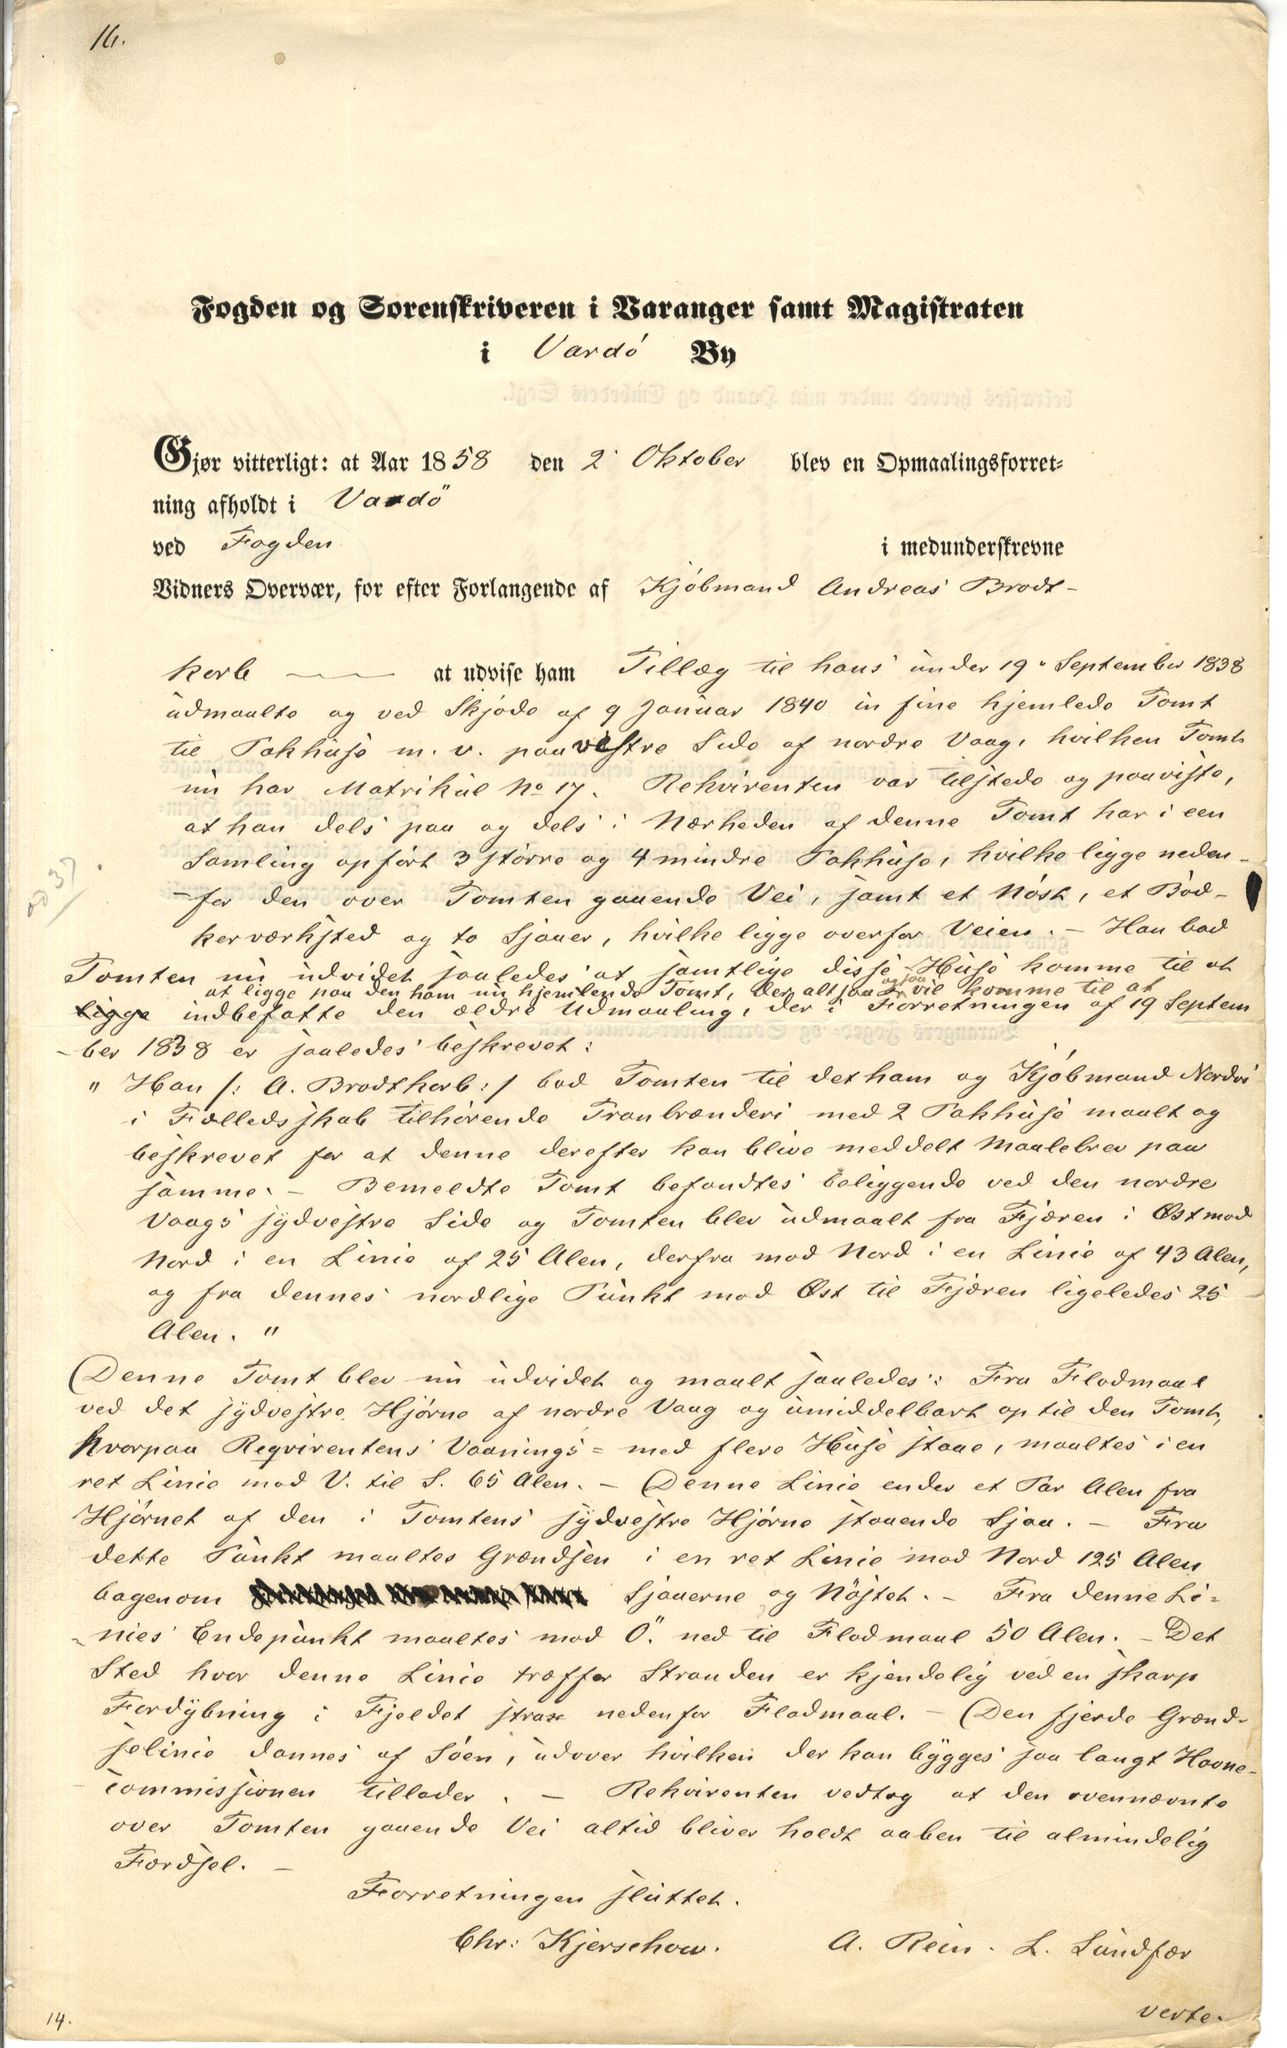 16.
Fogden og Sorenskriveren i Varanger samt Magistraten
i Vardö By
Gjør vitterligt: at Aar 1858 den 2' Oktober blev en Opmaalingsforret-
ning afholdt i Vardö
ved Fogden i medunderskrevne
Vidners Overvær, for efter Forlangende af Kjöbmand Andreas Brodt-
korb at udvise ham Tillæg til hans under 19' September 1838
udmaalte og ved Skjöde af 9 Januar 1840 in fine hjemlede Tomt
til Pakhuse m. v. paa vestre Side af nordre Vaag, hvilken Tomt
nu har Matrikul No 17. Rekvirenten var tilstede og paaviste,
at han dels paa og dels i Nærheden af denne Tomt har i een
Samling opfört 3 större og 4 mindre Pakhuse, hvilke ligge neden-
-for den over Tomten gaaende Vei, samt et Nöst, et Böd-
kerværksted og to Sjaaer, hvilke ligge overfor Veien. - Han bad
Tomten nu udvidet saaledes at samtlige disse Huse komme til at
at ligge paa den ham nu hjemlende Tomt, der altsaa vil komme til at
ligge indbefatte den ældre Udmaaling, der i Forretningen af 19 Septem
-ber 1838 er saaledes beskrevet:
" Han /: A. Brodtkorb :/ bad Tomten til det ham og Kjöbmand Nordvi
i Fælledsskab tilhörende Tranbrænderi med 2 Pakhuse maalt og
beskrevet for at denne derefter kan blive meddelt Maalebrev paa
samme. - Bemeldte Tomt befandtes beliggende ved den nordre
Vaags sydvestre Side og Tomten blev udmaalt fra Fjæren i Øst mod
Nord i en Linie af 25 Alen, derfra mod Nord i en Linie af 43 Alen,
og fra dennes nordlige Punkt mod Øst til Fjæren ligeledes 25
Alen. "
Denne Tomt blev nu udvidet og maalt saaledes: Fra Flodmaal
ved det sydvestre Hjørne af nordre Vaag og umiddelbart op til den Tomt,
hvorpaa Reqvirentens Vaanings= med flere Huse staae, maaltes i en
ret Linie mod V. til S. 65 Alen. - Denne Linie ender et Par Alen fra
Hjörnet af den i Tomtens sydvestre Hjörne staaende Sjaa. - Fra
dette Punkt maaltes Grændsen i en ret Linie mod Nord 125 Alen
bagenom Sjaaerne og Nöstet. - Fra denne Li-
-nies Endepunkt maaltes mod Ö. ned til Flodmaal 50 Alen. - Det
Sted hvor denne Linie træffer Stranden er kjendelig ved en skarp
Fordybning i Fjeldet strax nedenfor Flodmaal. - Den fjerde Grænd-
selinie dannes af Söen, udover hvilken der kan bygges saa langt Havne-
commissionen tillader. - Rekvirenten vedtog at den ovennævnte
over Tomten gaaende Vei altid bliver holdt aaben til almindelig
Færdsel. -
Forretningen sluttet.
Chr: Kjerschow. A. Rein. L. Sundfær
verte.
14.